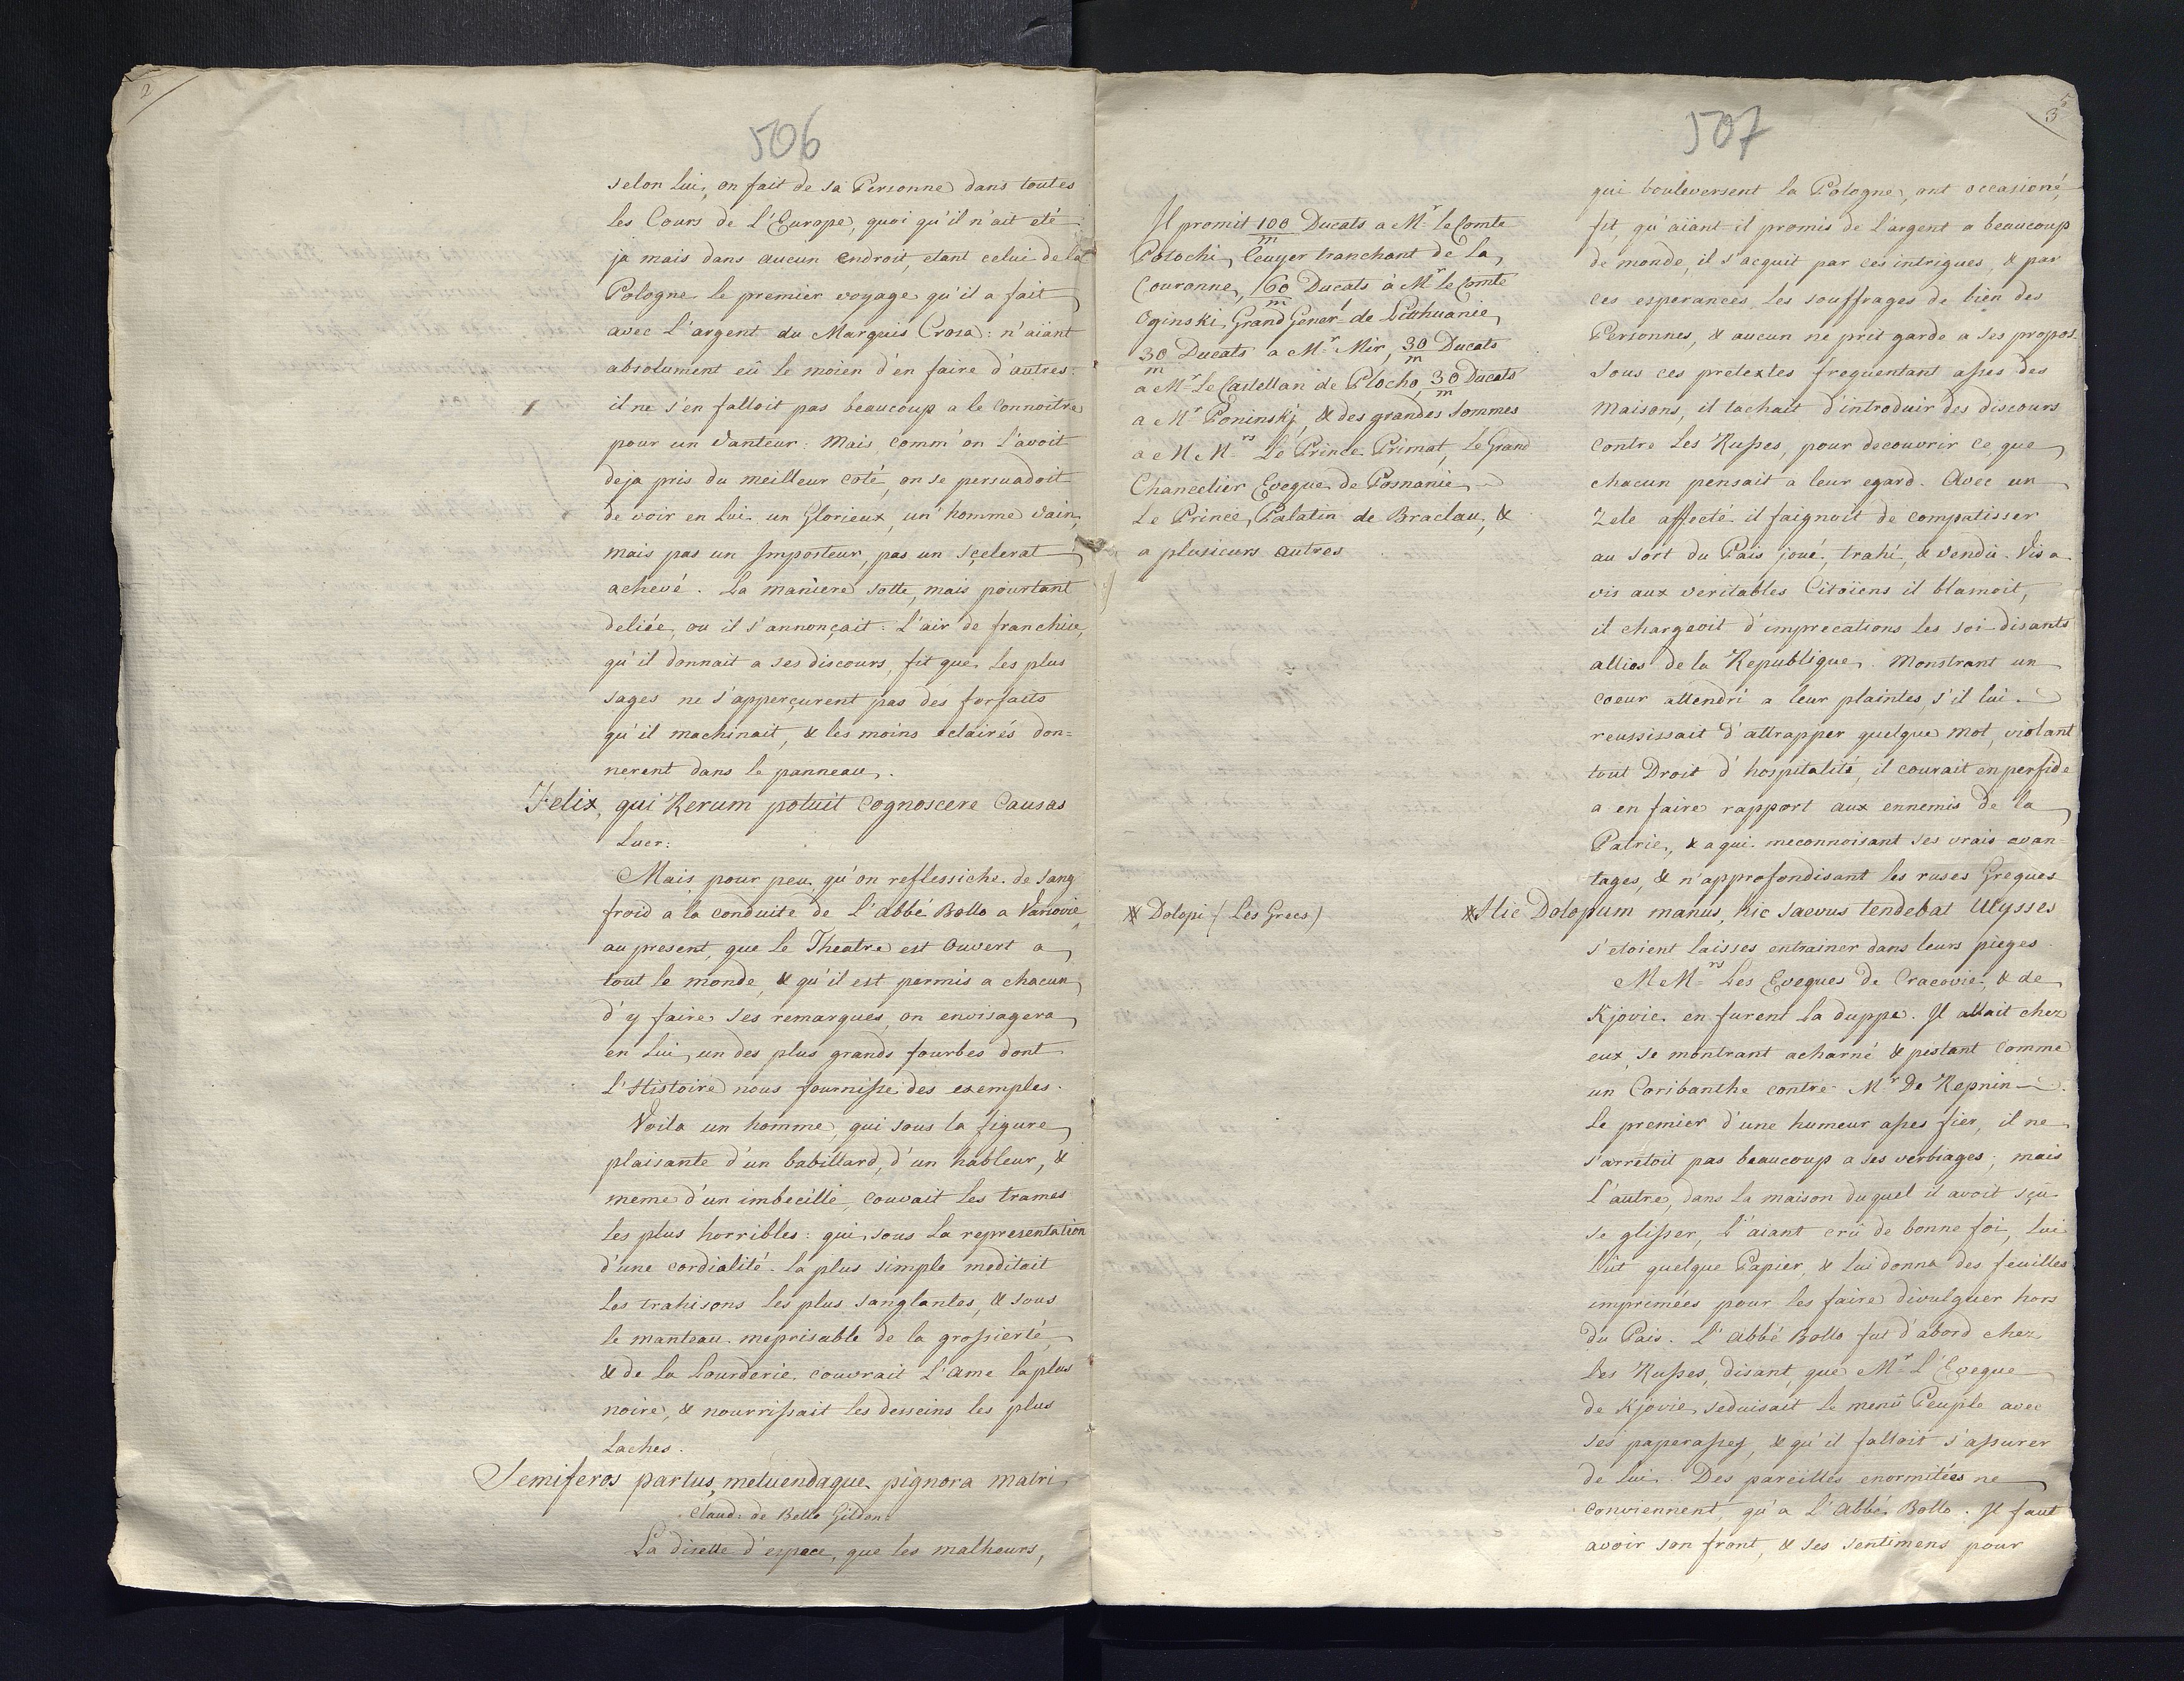 2
506
selon lui, on fait de sa Personne dans toutes
les Cours de l'Europe, quoi qu'il n'ait eté
ja mais dans aucun endroit, etant celui de la
Pologne le premier voyage qu'il a fait
avec l'argent du Marquis Crosa: n'aïant
absolument eû le moïen d'en faire d'autres:
il ne s'en falloit pas beaucoup a le connoitre
pour un Vanteur: Mais, comm'on l'avoit
deja pris du meilleur coté, on se persuadoit
de voir en lui un Glorieux, un' homme vain,
mais pas un Imposteur, pas un sçelerat
achevé. La maniere sotte, mais pourtant
deliée, ou il s'annonçait: L'air de franchise,
qu'il donnait a ses discours, fit que les plus
sages ne s'apperçurent pas des forfaits
qu'il machinait, & les moins eclairés don=
nerent dans le panneau.
Felix, qui Rerum potuit Cognoscere Causas
Lucr:
Mais pour peu qu'on reflessiche de sang
froid a la conduite de l'Abbé Bollo a Varsovie
au present, que le Theatre est ouvert a
tout le monde, & qu'il est permis a chacun
d'y faire ses remarques, on envisagera
en lui un des plus grands fourbes dont
l'Histoire nous fournisse des exemples.
Voila un homme, qui sous la figure
plaisante d'un babillard, d'un hableur, &
meme d'un imbecille, couvait les trames
les plus horribles: qui, sous la representation
d'une cordialité la plus simple meditait
les trahisons les plus sanglantes, & sous
le manteau meprisable de la grossierté
& de la Lourderie couvrait l'Ame la plus
noire, & nourrissait les desseins les plus
Laches.
Semiferos partus, metuendaque pignora matri
Claud: de Bello Gildon:
La disette d'espece, que les malheurs,
3
507
Il promit 100/m Ducats a Mr. le Comte
Potochi, Ecuyer tranchant de la
Couronne, 60/m Ducats à Mr. le Comte
Oginski, Grand Genér.l de Litthuanie,
30/m Ducats a Mr. Mir, 30/m Ducats
a Mr. le Castellan de Plocho, 30/m Ducats
a Mr. Poninskj, & des grandes sommes
a M Mrs. Le Prince Primat, le Grand
Chancelier Eveque de Posnanie
Le Prince Palatin de Braclau, &
a plusieurs autres
* Dolopi (Les Grecs)
qui bouleversent la Pologne, ont occasioné,
fit, qu'aïant-il promis de l'argent a beaucoup
de monde, il s'acquit par ces intrigues, & par
ces esperances les souffrages de bien des
Personnes, & aucun ne prit garde a ses propos.
Sous ces pretextes frequentant asses des
Maisons, il tachait d'introduir des discours
contre les Russes, pour decouvrir ce, que
chacun pensait a leur egard. Avec un
Zele affecté il faignoit de compatisser
au sort du Païs joué, trahi, & vendu. Vis a
vis aux veritables Citoïens il blamoit,
il chargeoit d'imprecations les soi-disants
allies de la Republique. Monstrant un
coeur attendri a leur plaintes, s'il lui
reussissait d'attrapper quelque mot, violant
tout Droit d'hospitalité, il courait en perfide
a en faire rapport aux ennemis de la
Patrie, & a qui meconnoisant ses vrais avan-
tages, & n'approfondisant les ruses Greques
*Hic Dolopum manus, hic saevus tendebat Ulysses
s'etoient laisses entrainer dans leurs pieges.
M Mrs. Les Eveques de Cracovie, & de
Kjovie en furent la duppe. Il allait chez
eux, se montrant acharné & pestant comme
un Coribanthe contre Mr. De Repnin.
Le premier d'une humeur asses fier, il ne
s'arretoit pas beaucoup a ses verbiages; mais
l'autre, dans la maison duquel il avoit sçu
se glisser, l'aïant crû de bonne foi, lui
lût quelque Papier, & lui donna des feuilles
imprimées pour les faire divulguer hors
du Païs. L'Abbé Bollo fut d'abord chez
les Russes, disant, que Mr. l'Eveque
de Kjovie seduisait le menû Peuple avec
ses paperasses, & qu'il falloit s'assurer
de lui. Des pareilles enormitées ne
conviennent, qu'a l'Abbé Bollo. Il faut
avoir son front, & ses sentimens pour